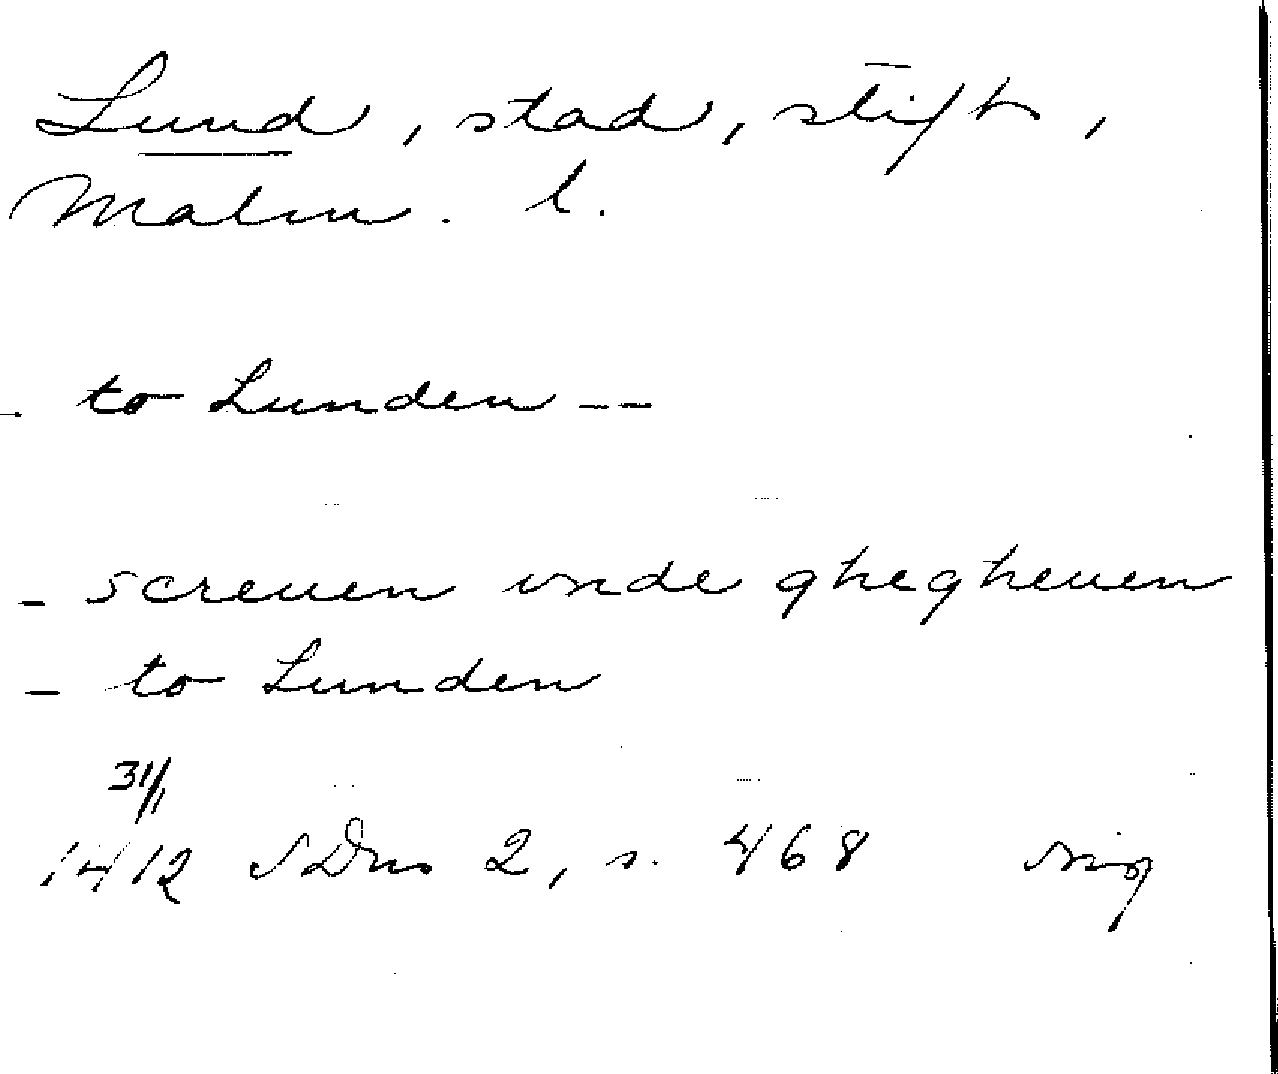 Lund, stad, stift,
Malm. l.
- to Lunden --
- screuen vnde ghegheuen
- to Lunden
31/1
1412 SDns 2, s. 468 orig